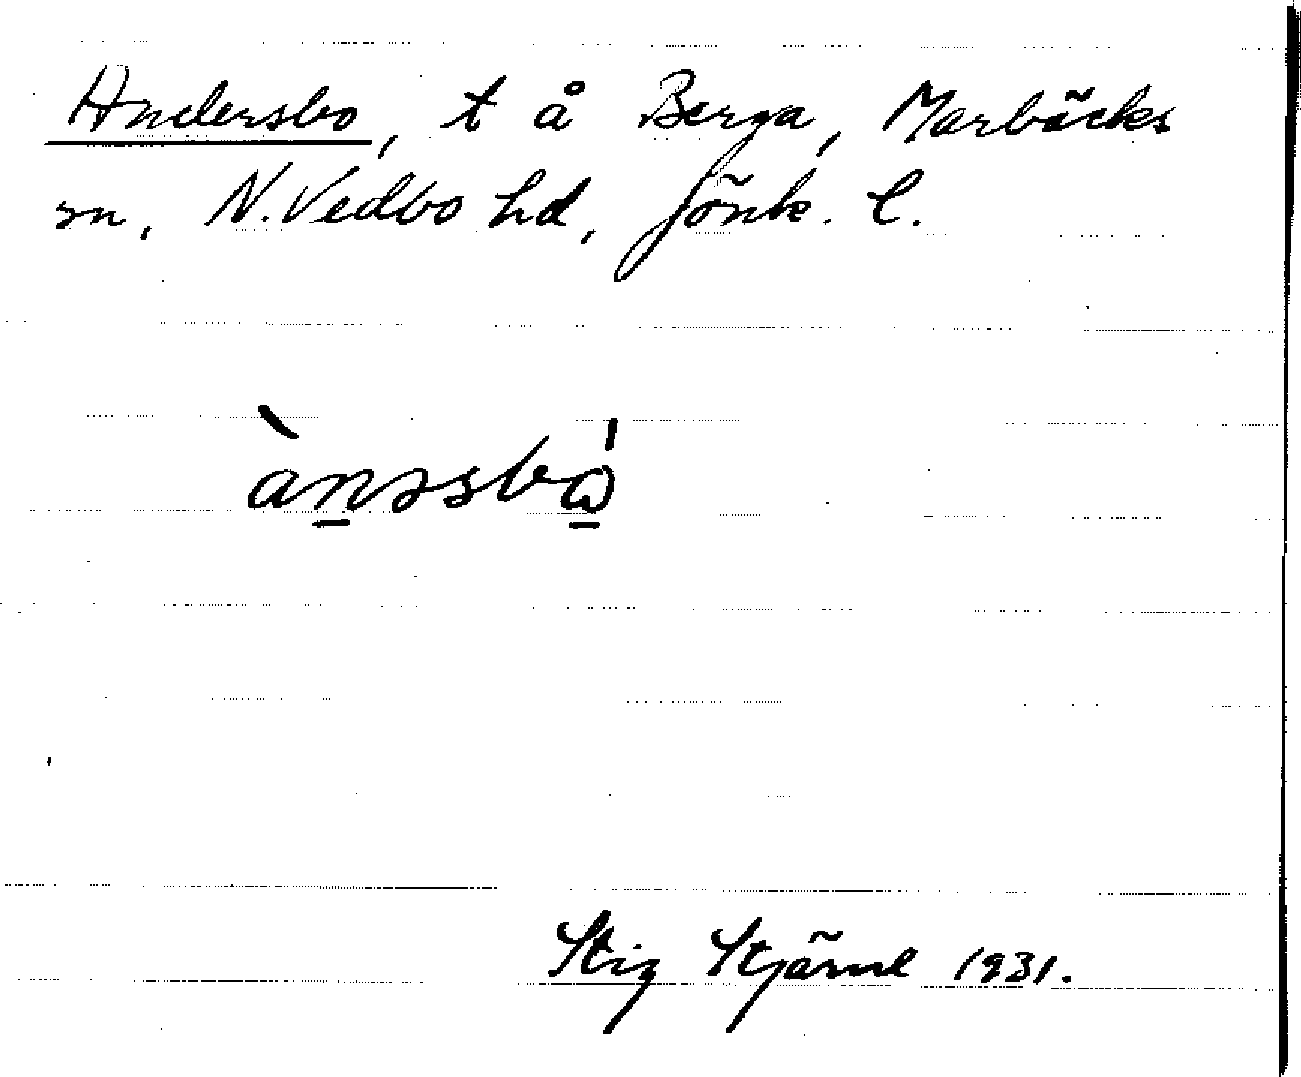 Andersbo, t å Berga, Marbäcks
sn, N. Vedbo hd, Jönk. l.
ànəsbɷ̀
Stig Stjärne 1931.